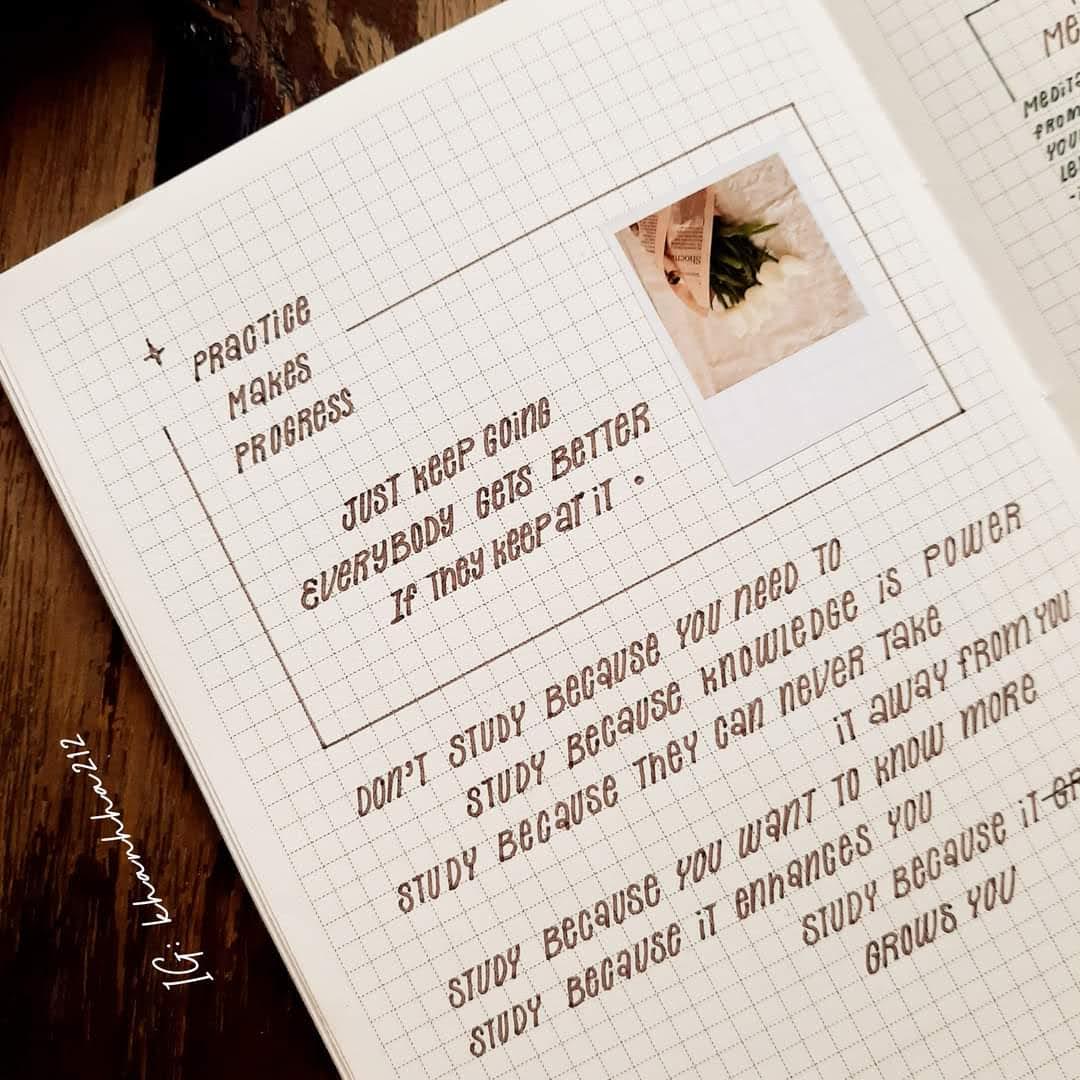 PRACTICE
MAKES
PROGRESS
JUST KEEP GOING
EVERYBODY GETS BETTER
If They KEEP AT iT .
DON'T STUDY BECAUSE YOU NEED TO
STUDY BECAUSE KNOWLEDGE iS POWER
STUDY BECAUSE THEY CAN NEVER TAKE
iT AWAY FROM YOU
STUDY BECAUSE YOU WANT TO KNOW MORE
STUDY BECAUSE iT ENHANCES YOU
STUDY BECAUSE iT
GROWS YOU
FROM
IG: khanhha212